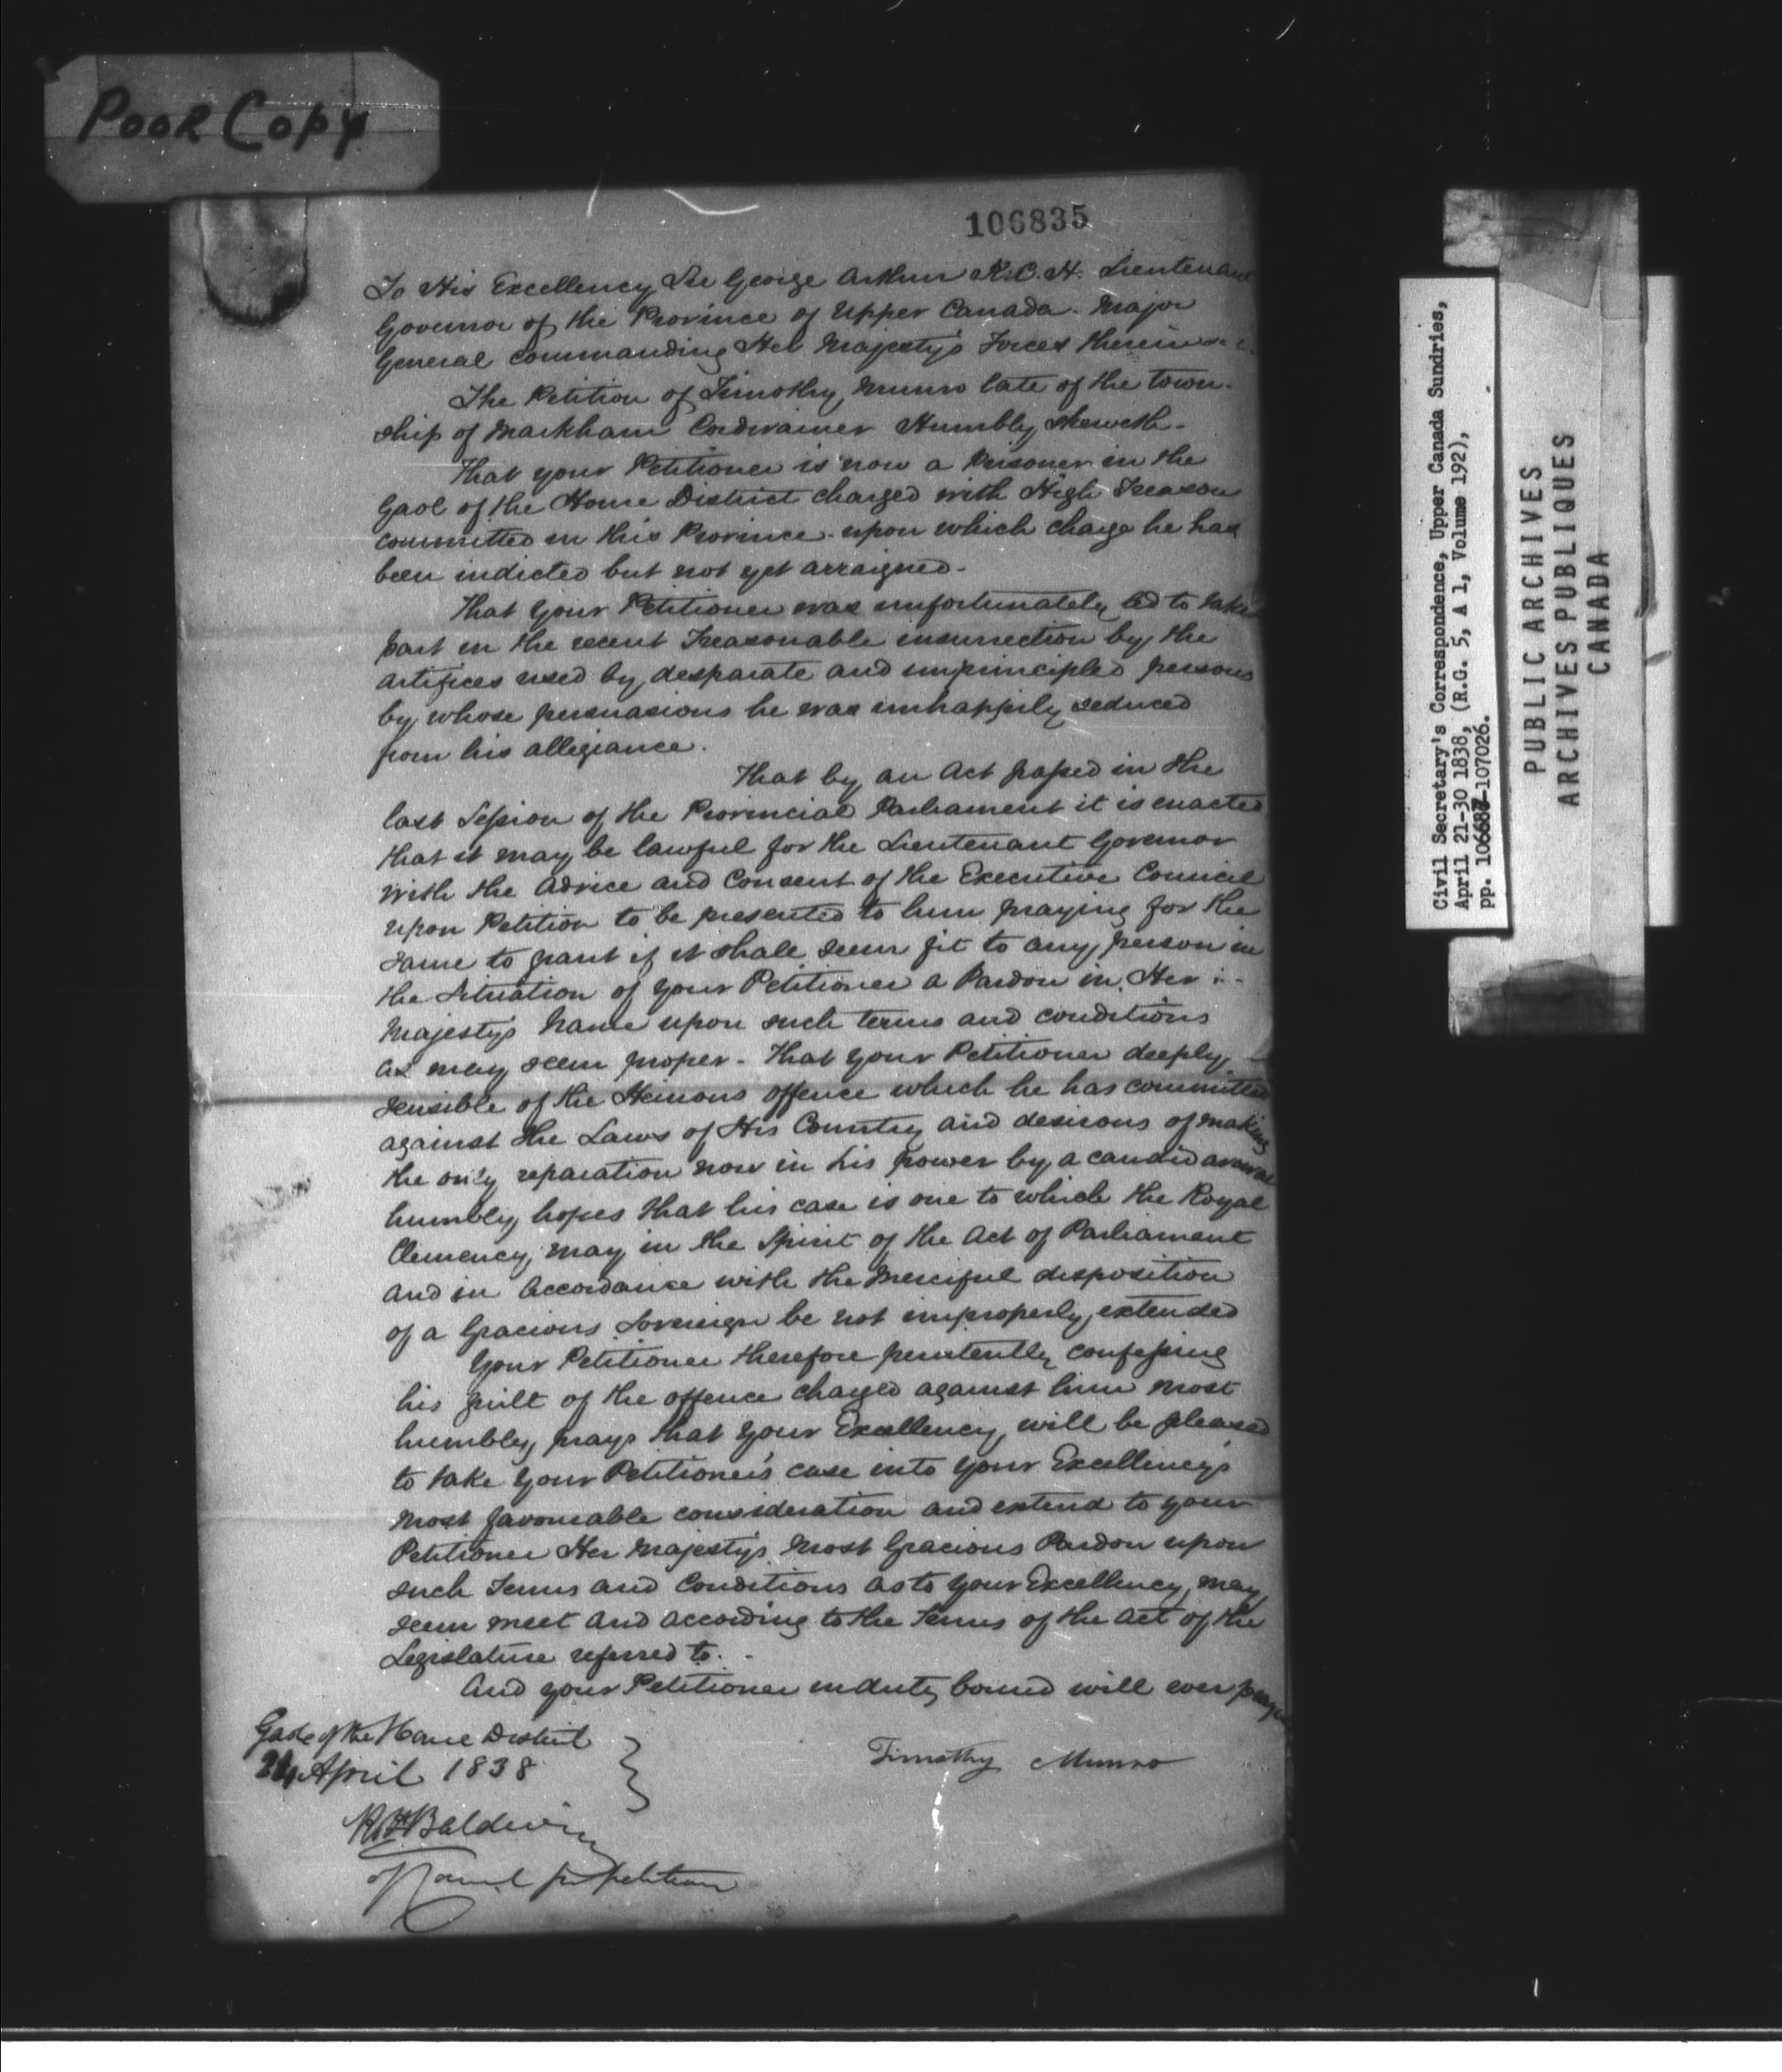 Poor Copy
106835
To His Excellency Sir George Arthur K.C.H. Lieutenant
Governor of the Province of Upper Canada. Major
General Commanding Her Majesty's Forces therein
The Petition of Timothy Munro late of the town-
ship of Markham Cordwainer Humbly Sheweth-
That your Petitioner is now a Prisoner in the
Gaol of the Home District charged with High Treason
committed in this Province - upon which charge he has
been indicted but not yet arraigned -
That your Petitioner was unfortunately led to take
part in the recent Treasonable insurrection by the
artifices used by desparate and unprincipled persons
by whose persuasions he was unhappily seduced
from his allegiance.
That by an Act passed in the
last Session of the Provincial Parliament it is enacted
that it may be lawful for the Lieutenant Governor
with the Advice and Consent of the Executive Council
upon Petition to be presented to him praying for the
same to grant if it shall seem fit to any person in
the Situation of your Petitioner a Pardon in Her
Majestys Name upon such terms and conditions
as may seem proper - That your Petitioner deeply
sensible of the Heinous offence which he has committed
against the Laws of His Country and desirous of making
the only reparation now in his power by a candid avowal
humbly hopes that his case is one to which the Royal
Clemency may in the Spirit of the Act of Parliament
and in accordance with the Merciful disposition
of a Gracious Sovereign be not improperly extended
Your Petitioner therefore penitently confessing
his guilt of the offence charged against him most
humbly prays that your Excellency will be pleased
to take your Petitioner's case into your Excellencys
most favourable consideration and extend to your
Petitioner Her Majestys Most Gracious Pardon upon
such Terms and Conditions as to your Excellency may
seem meet and according to the Terms of the Act of the
Legislature referred to.
And your Petitioner in duty bound will ever pray
Gaol of the Home District
24 April 1838
Timothy Munro
Baldwin
of Counsel for petitioner
Civil Secretary's Correspondence, Upper Canada Sundries,
April 21-30 1838, (R.G. 5, A 1, Volume 192),
pp. 106687-107026.
PUBLIC ARCHIVES
ARCHIVES PUBLIQUES
CANADA